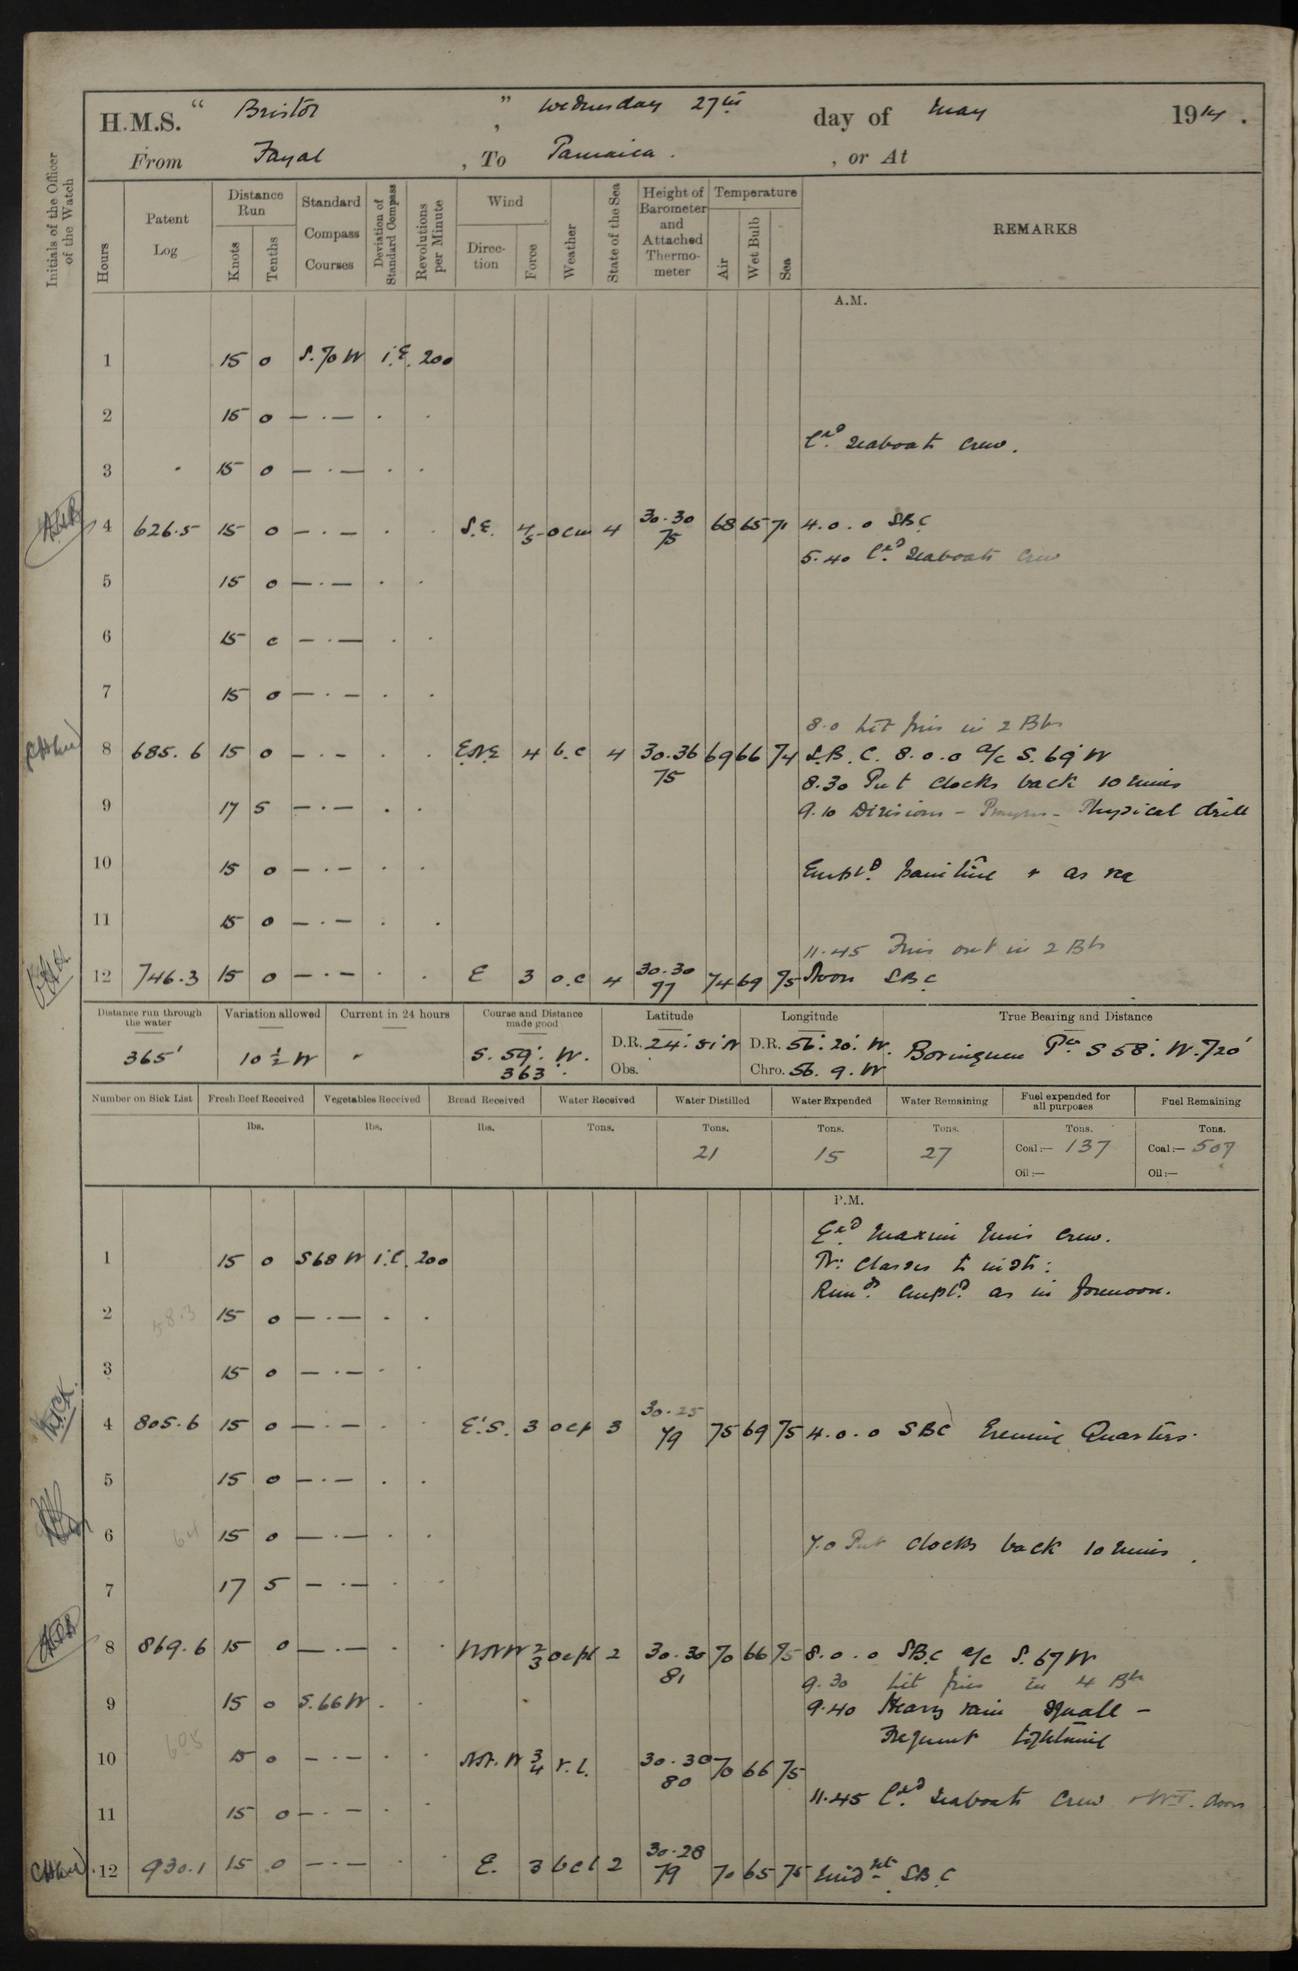 H.M.S. " Bristol ", Wednesday 27th day of May 1914.
From Fayal, To Jamaica. , or At
Initials of the Officer of the Watch
Hours
Patent Log
Distance Run
Knots
Tenths
Standard Compass Courses
Deviation of Standard Compass
Revolutions per Minute
Wind
Direction
Force
Weather
State of the Sea
Height of Barometer and Attached Thermometer
Temperature
Air
Wet Bulb
Sea
REMARKS
A.M.
1 15 0 S.70 W 1.E. 200
2 15 0 — · — · ·
Cd Seaboats crew.
3 15 0 — · — · ·
4 626.5 15 0 — · — · · S.E. 4/5 ocm 4 30.30 75 68 65 71 4.0.0 S.B.C
5.40 Cd Seaboats crew
5 15 0 — · — · ·
6 15 0 — · — · ·
7 15 0 — · — · ·
8.0 Lit fires in 2 Brs
8 685.6 15 0 — · — · · E.N.E 4 b.c 4 30.36 75 69 66 74 S.B.C. 8.0.0 a/c S.69 W
8.30 Put clocks back 10 mins
9 17 5 — · — · · 9.10 Divisions - Prayers - Physical drill
10 15 0 — · — · · Empld painting & as req
11 15 0 — · — · ·
11.45 Fires out in 2 Brs
12 746.3 15 0 — · — · · E 3 o.c 4 30.30 77 74 69 75 Noon S.B.C
Distance run through the water
Variation allowed
Current in 24 hours
Course and Distance made good
Latitude
Longitude
True Bearing and Distance
365' 10½ W S. 59. W. 363' D.R. 24. 51 N D.R. 56. 20. W. Borinquen Pt. S 58. W. 720'
Obs. Chro. 56. 9. W
Number on Sick List
Fresh Beef Received
Vegetables Received
Bread Received
Water Received
Water Distilled
Water Expended
Water Remaining
Fuel expended for all purposes
Fuel Remaining
lbs. lbs. lbs. Tons. Tons. Tons. Tons. Tons. Tons.
21 15 27 Coal:— 137 Coal:— 507
Oil:— Oil:—
P.M.
Exd Maxim Guns crew.
1 15 0 S68 W 1.E. 200 Classes to instr:
Remdr. empld as in forenoon.
2 58.3 15 0 — · — · ·
3 15 0 — · — · ·
4 805.6 15 0 — · — · · E'S. 3 ocp 3 30.25 79 75 69 75 4.0.0 SBC Evening Quarters.
5 15 0 — · — · ·
6 64 15 0 — · — · ·
7.0 Put clocks back 10 mins.
7 17 5 — · — · ·
8 869.6 15 0 — · — · · NNW 2/3 ocpl 2 30.30 81 70 66 75 8.0.0 S.B.C a/c S. 67 W
9.30 Lit fires in 4 Brs
9 15 0 S.66 W · · 9.40 Heavy rain squall -
Frequent lightning
10 15 0 — · — · · 3/4 r.l. 30.30 80 70 66 75
11.45 Cd Seaboats crew & W.T. doors
11 15 0 — · — · ·
12 930.1 15 0 — · — · · E. 3 bcl 2 30.28 79 70 65 75 Midnt. S.B.C